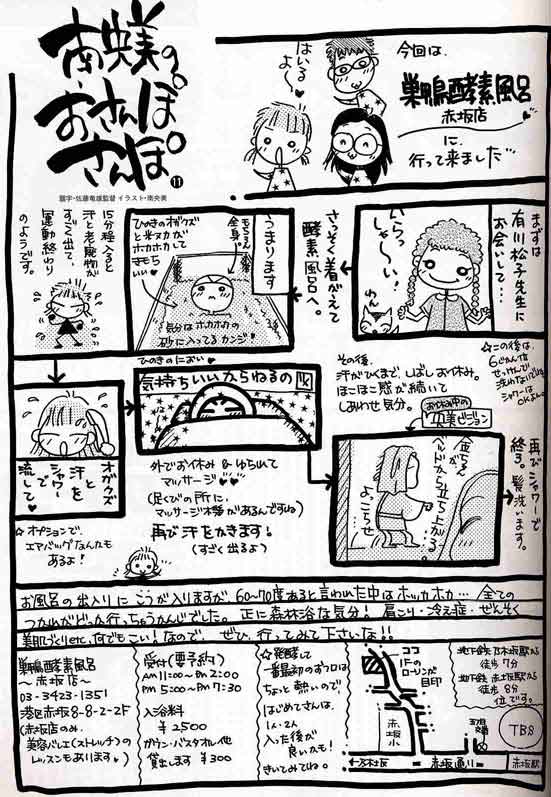 南央美の
おさんぽ
さんぽ。
11
題字・佐藤竜雄監督 イラスト・南央美
はいるよ〜
今回は、
巣鴨酵素風呂
赤坂店
に、
行って来ました…
まずは
有川松子先生に
お会いして…
いらっしゃ〜い
わん
さっそく着がえて
酵素風呂へ。
うまります
もちろん
全身。
ひのきのオガクズ
と米ヌカが
ホカホカして
きもちいい
気分はホカホカの
砂に入ってるカンジ!
15分程入ると
汗と老廃物が
すごく出て、
運動終わり
のようです。
オガクズ
と
汗を
シャワーで
流して
☆オプションで、
エアバッグなんたも
あるよ!
ひのきのにおい
気持ちいいからねるの図
外でお休み&ゆられて
マッサージ
(足くびの所に、
マッサージ木幾があるんですね)
再び汗をかきます!
(すごく出るよ)
その後、
汗がひくまで、しばしお休み。
ほこほこ感が続いて
しあわせ気分。
お休み中の
央美ビジョン
金ちゃんが、
ベッドから立ち上がる。
よっこらせ
☆この後は、
シャワーは
OKよん
再びシャワーで
終了。髪洗います。
お風呂の出入りにこうが入りますが、60〜70度あると言われた中はホッカホカ…全ての
つかれがどっか行っちゃうかんじでした。正に森林浴な気分!肩こり・冷え症・ぜんそく
美肌づくりetc.何でもこい!なので、ぜひ、行ってみて下さいな!!
巣鴨酵素風呂
〜赤坂店〜
03-3423-1351
港区赤坂8-8-2-2F
(赤坂店のみ、
美容バレエ(ストレッチ)の
レッスンもあります)
受付(要予約)
AM11:00〜PM2:00
PM5:00〜PM7:30
入浴料
¥2500
ガウン・バスタオル他
貸出します ¥300
☆発酵して
一番最初のおフロは
ちょっと熱いので、
はじめてさんは、
1人・2人
入った後が
良いカモ!
きいてみてね。
ココ
1Fの
ローソンが
目印
赤坂小
乃木坂
赤坂通り
赤坂駅
TBS
地下鉄乃木坂駅から
徒歩7分
地下鉄赤坂駅から
徒歩8分
位です。